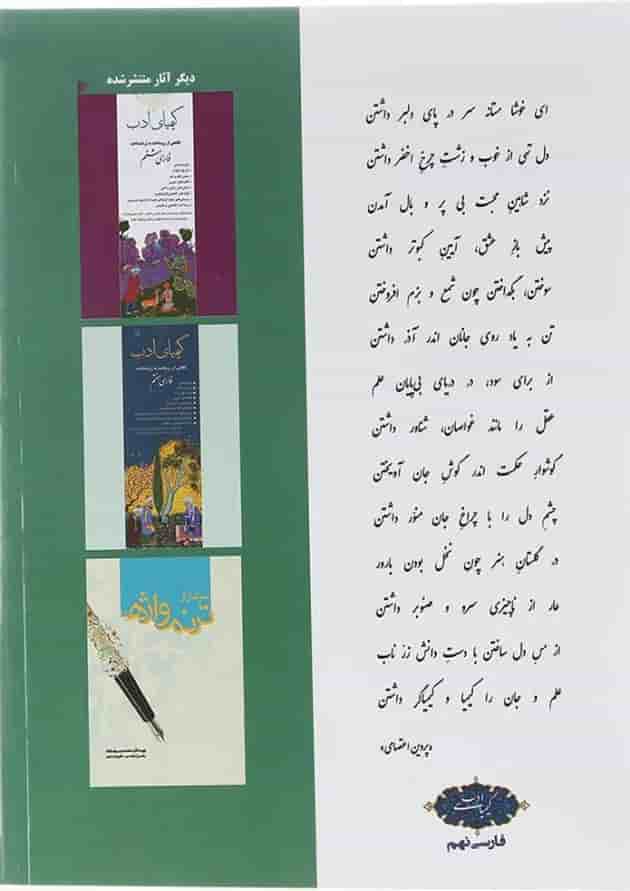 ای خوشا مستانه سر در پای دلبر داشتن
دل تهی از خوب و زشتِ چرخِ اخضر داشتن
نزد شاهینِ محبت بی پر و بال آمدن
پیش بازِ عشق، آیینِ کبوتر داشتن
سوختن، بگداختن چون شمع و بزم افروختن
تن به یاد روی جانان اندر آذر داشتن
از برای سود، در دریای بی‌پایان علم
عقل را مانند غواصان، شناور داشتن
گوشوارِ حکمت اندر گوشِ جان آویختن
چشمِ دل را با چراغِ جان منوّر داشتن
در گلستانِ هنر چون نخل بودن بارور
عار از ناچیزی سرو و صنوبر داشتن
از مسِ دل ساختن با دستِ دانش زرّ ناب
علم و جان را کیمیا و کیمیاگر داشتن
«پروین اعتصامی»
کیمیای ادب
فارسی نهم
دیگر آثار منتشر شده
کیمیای ادب
فارسی هشتم
کیمیای ادب
فارسی هفتم
واژه